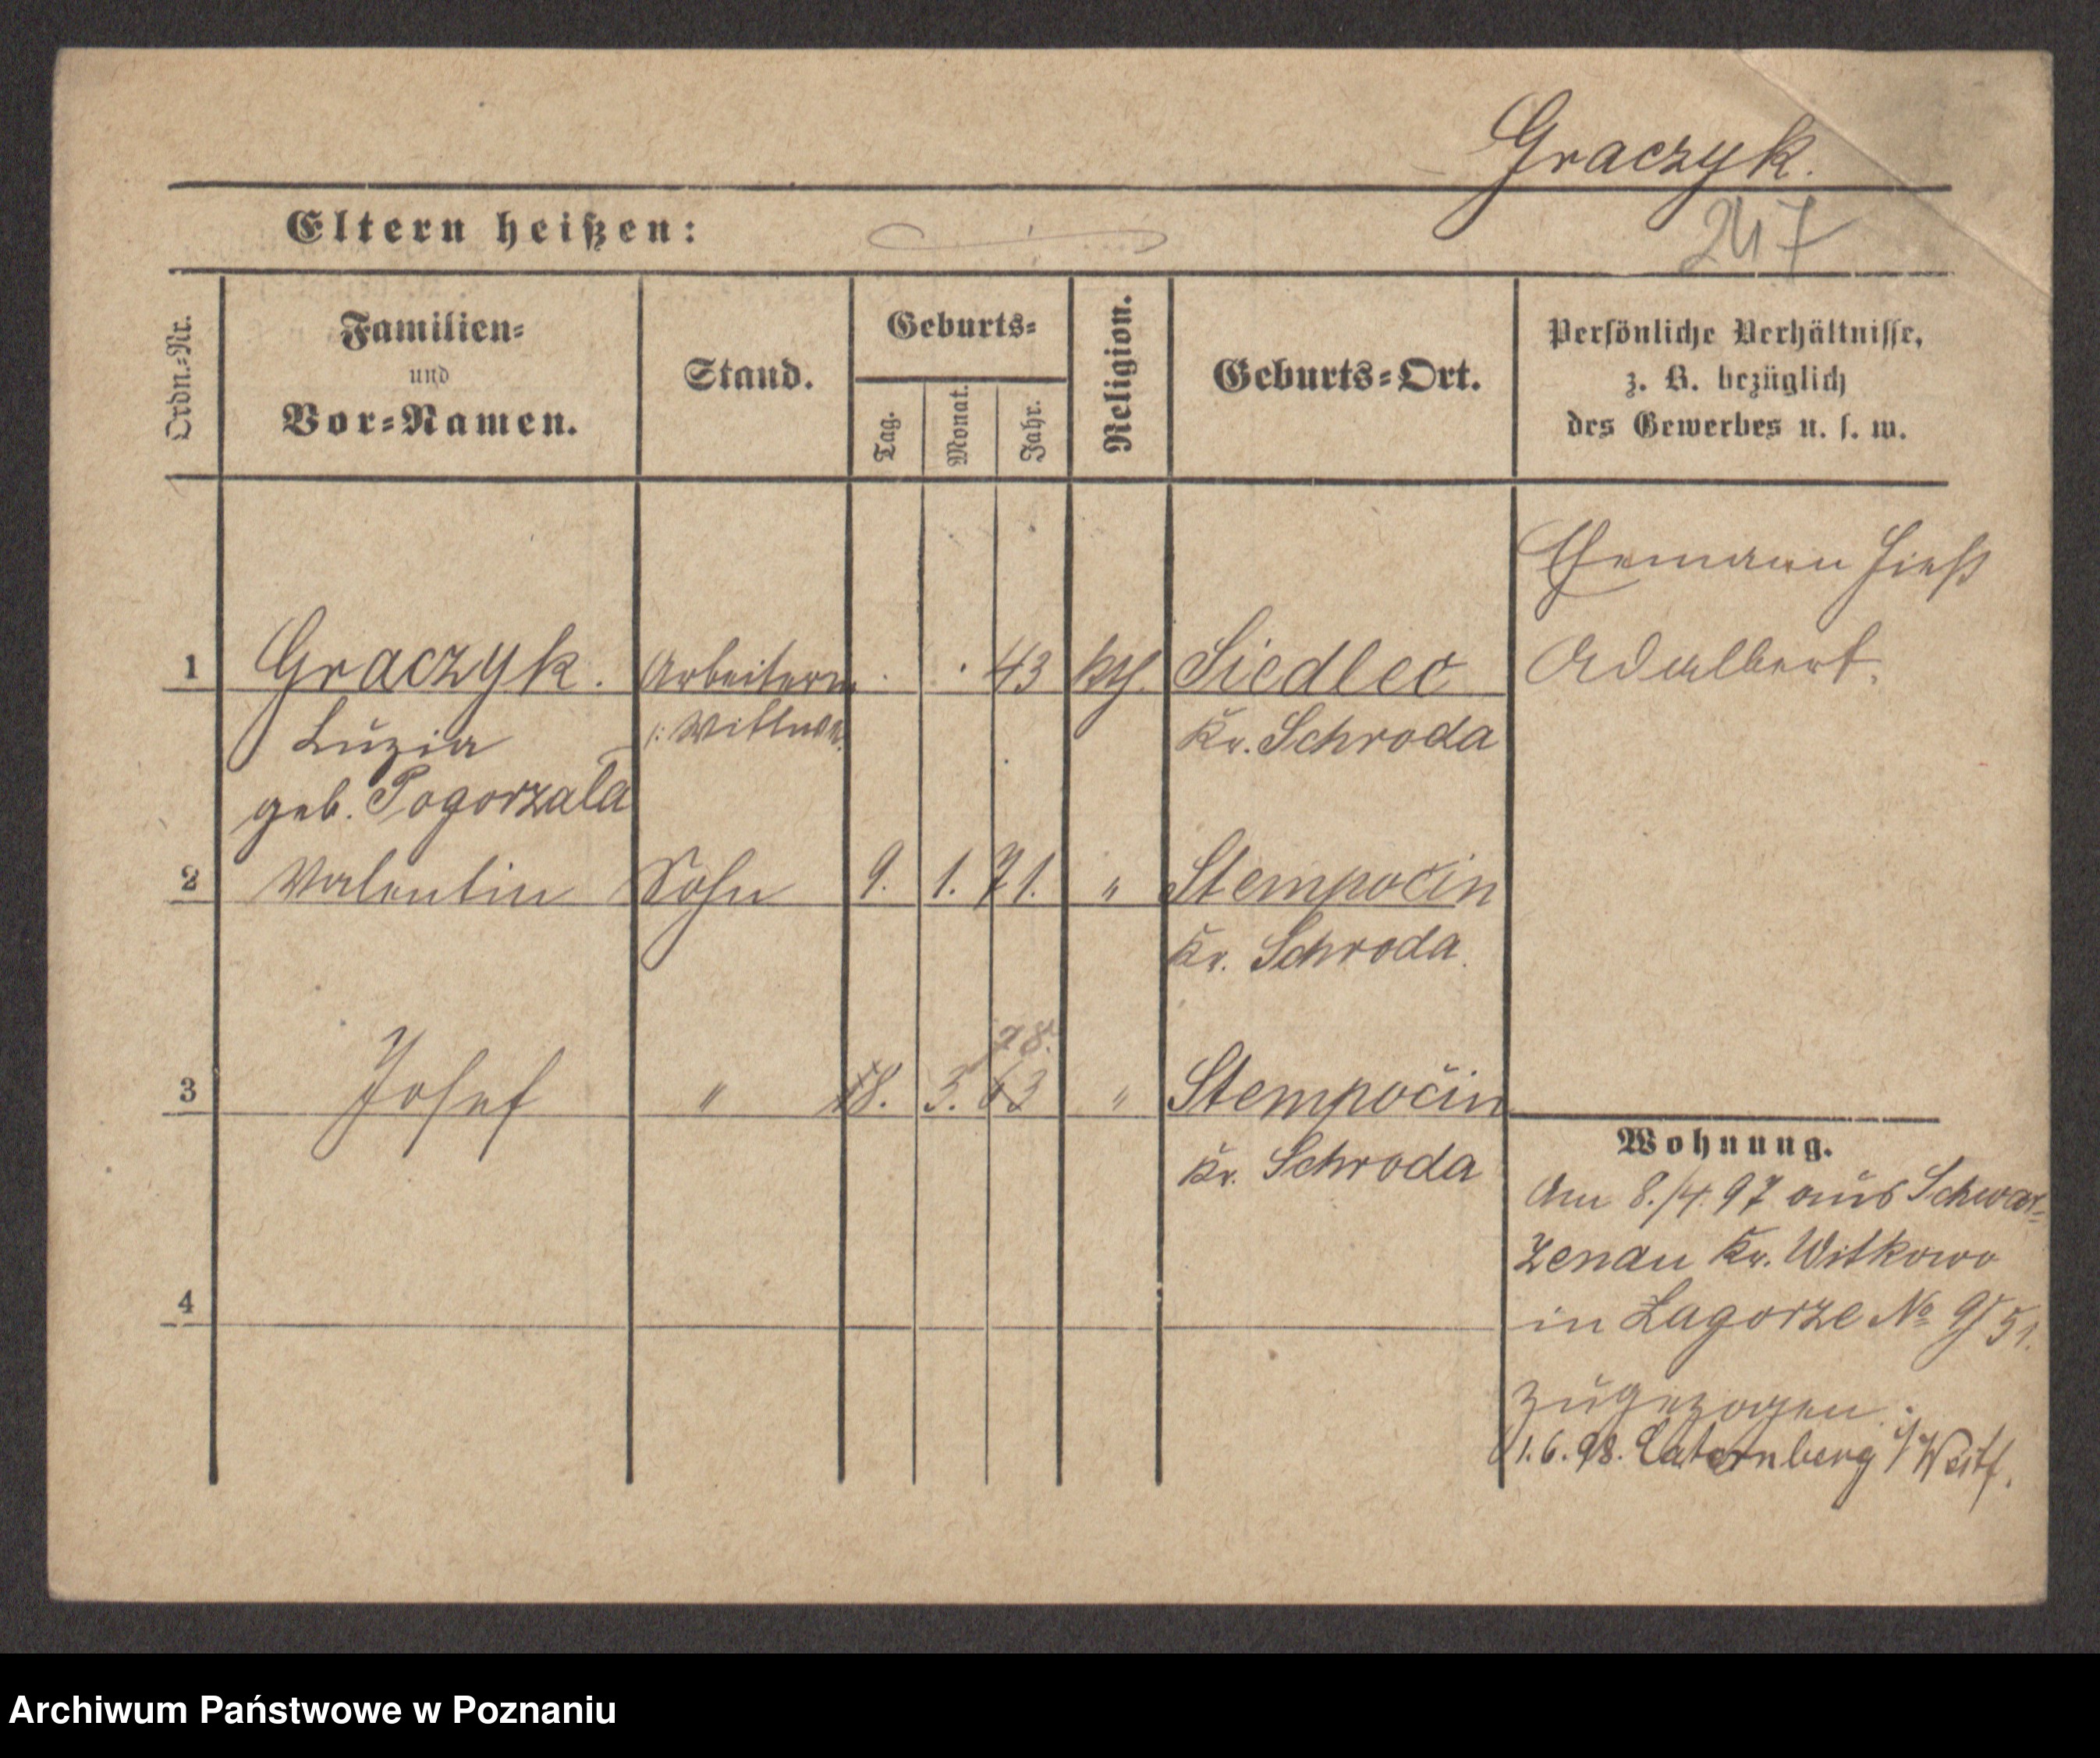 Graczyk.
Eltern heißen:
247
Ordn.-Nr.
Familien-
und
Vor-Namen.
Stand.
Geburts-
Tag.
Monat.
Jahr.
Religion.
Geburts-Ort.
Persönliche Verhältnisse,
z. B. bezüglich
des Gewerbes u. s. w.
Ehemann hieß
Adalbert.
1 Graczyk. Arbeiterin . . 43 Siedlec
Luzia Wittwe Kr. Schroda
geb. Pogorzała
2 Valentin Sohn 9. 1. 71. " Stempocin
Kr. Schroda.
78.
3 Josef " 18. 3. 63 " Stempocin
Kr. Schroda
4
Wohnung.
Am 8./4.97 aus Schwar-
zenau Kr. Witkowo
in Zagorze No 9/51.
zugezogen.
1.6.98. Caternberg i/Westf.
Archiwum Państwowe w Poznaniu